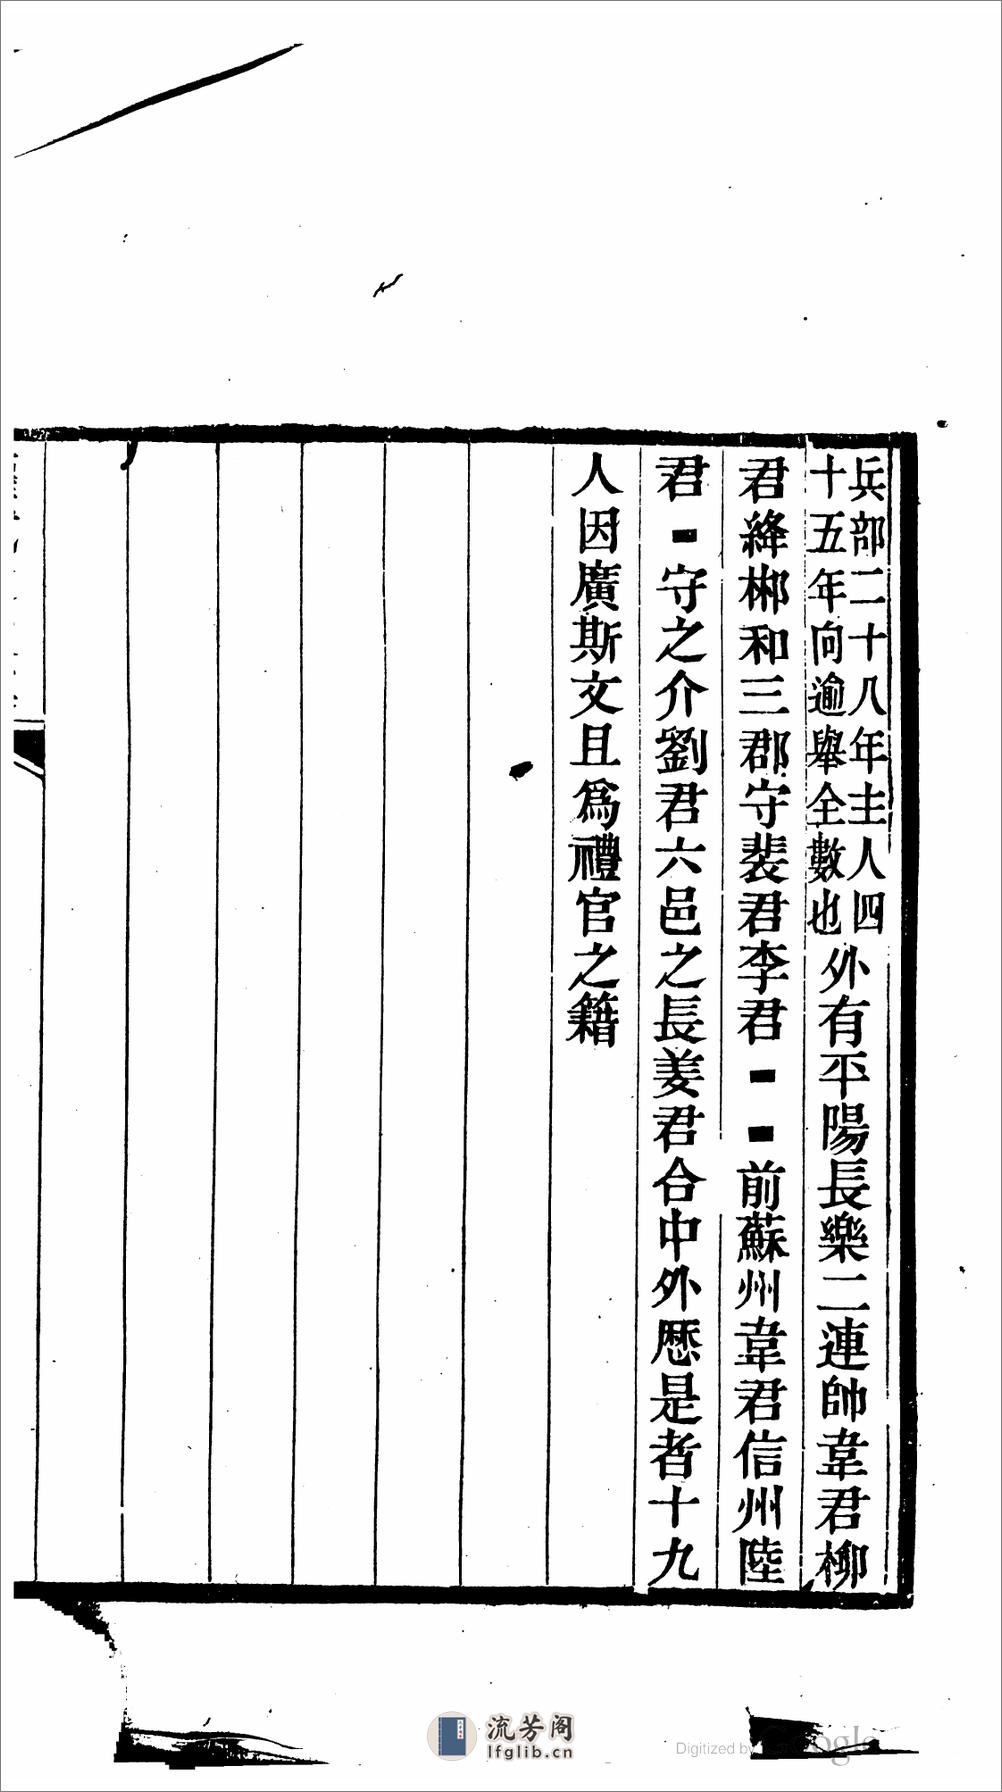 兵部二十八年主人四
十五年向逾舉全數也
外有平陽長樂二連帥韋君柳
君絳郴和三郡守裴君李君▪▪前蘇州韋君信州陸
君▪守之介劉君六邑之長姜君合中外歷是者十九
人因廣斯文且爲禮官之籍
流芳阁
lfglib.cn
Digitized by Google